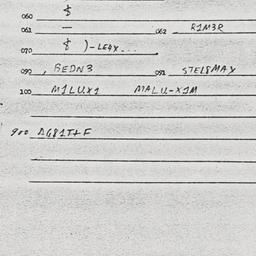 060 $
061 — 062 R1M3R
070 $ )-LE4X...
090 , BEDN3 091 STEL8MAX
100 M1LUX1 MALU-X1M
900 AG81T+F